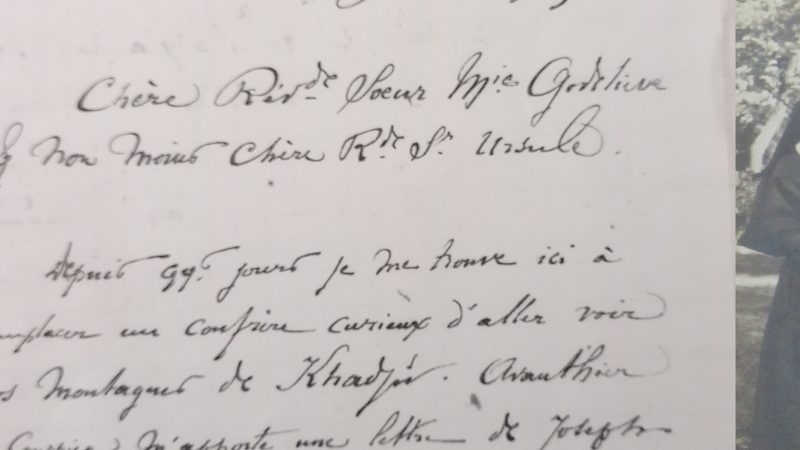 Chère Révde Soeur Mie Godelieve
& non moins chère Rde Sr Ursule.
Depuis qqs jours je me trouve ici à
mplacer un confrère curieux d'aller voir
os montagnes de Khadjir. Avanthier
m'apporte une lettre de Joseph